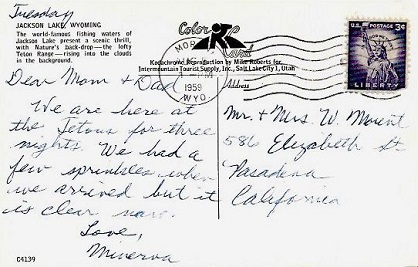 Tuesday
JACKSON LAKE, WYOMING
The world-famous fishing waters of
Jackson Lake present a scenic thrill,
with Nature's back-drop—the lofty
Teton Range—rising into the clouds
in the background.
Color
Card
Kodachrome Reproduction by Mike Roberts for
Intermountain Tourist Supply, Inc., Salt Lake City 1, Utah.
Address
MOR
1959
WYO.
U.S. POSTAGE
3¢
LIBERTY
Dear Mom + Dad
We are here at
the Tetons for three
nights. We had a
few sprinkles when
we arrived but it
is clear now.
Love,
Minerva
Mr. + Mrs. W. Morent
586 Elizabeth St
Pasadena
California
C4139